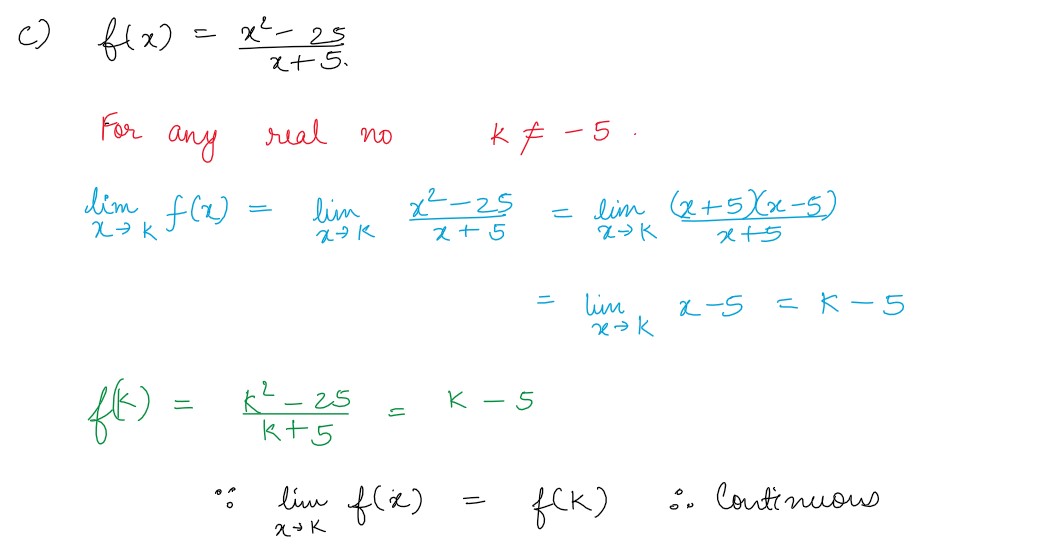 c) f(x) = (x² - 25)/(x + 5).
For any real no k ≠ -5.
lim x→k f(x) = lim x→k (x² - 25)/(x + 5) = lim x→k ((x+5)(x-5))/(x+5)
= lim x→k x-5 = k - 5
f(k) = (k² - 25)/(k + 5) = k - 5
∵ lim x→k f(x) = f(k) ∴ Continuous